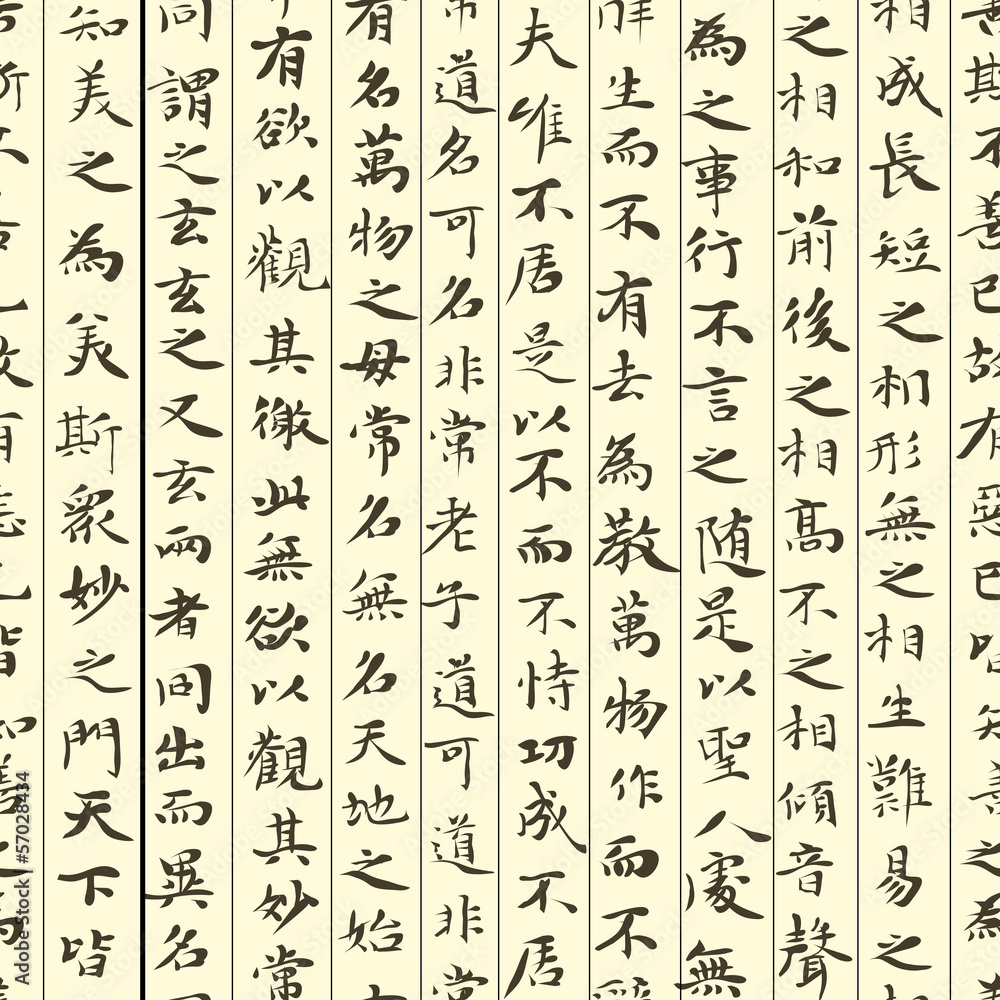 善斯不善已故有惡已皆知善之為
相成長短之相形無之相生難易之
之相和前後之相高不之相傾音聲
為之事行不言之随是以聖人處無
生而不有去為教萬物作而不
夫唯不居是以不而不恃功成不居
常道名可名非常老子道可道非常
有名萬物之母常名無名天地之始
有欲以觀其徼此無欲以觀其妙常
同謂之玄玄之又玄兩者同出而異名
知美之為美斯眾妙之門天下皆
Adobe Stock | #57028434